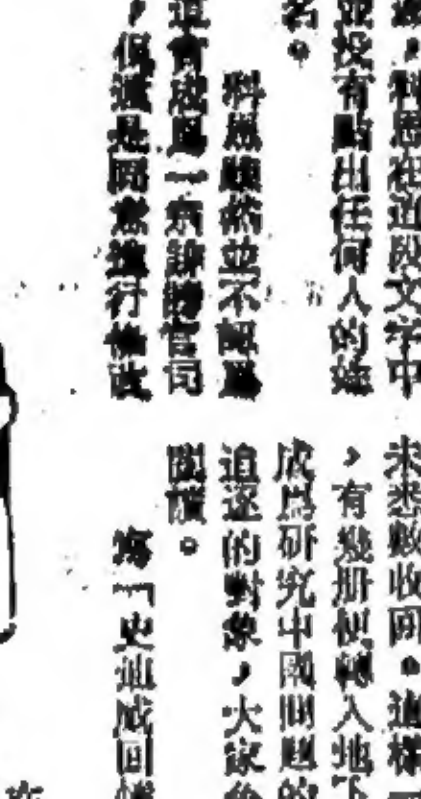 科思在這段文学中
並沒有點出任何人的姓
名。
科思顯然並不認爲
這會成爲一宗誹謗官司
,但還是同意進行修改
未悉數收回。這樣一
,有幾册便轉入地下
成爲研究中國問題的
追逐的對象,大家
閱讀。
寫「史迪威回憶